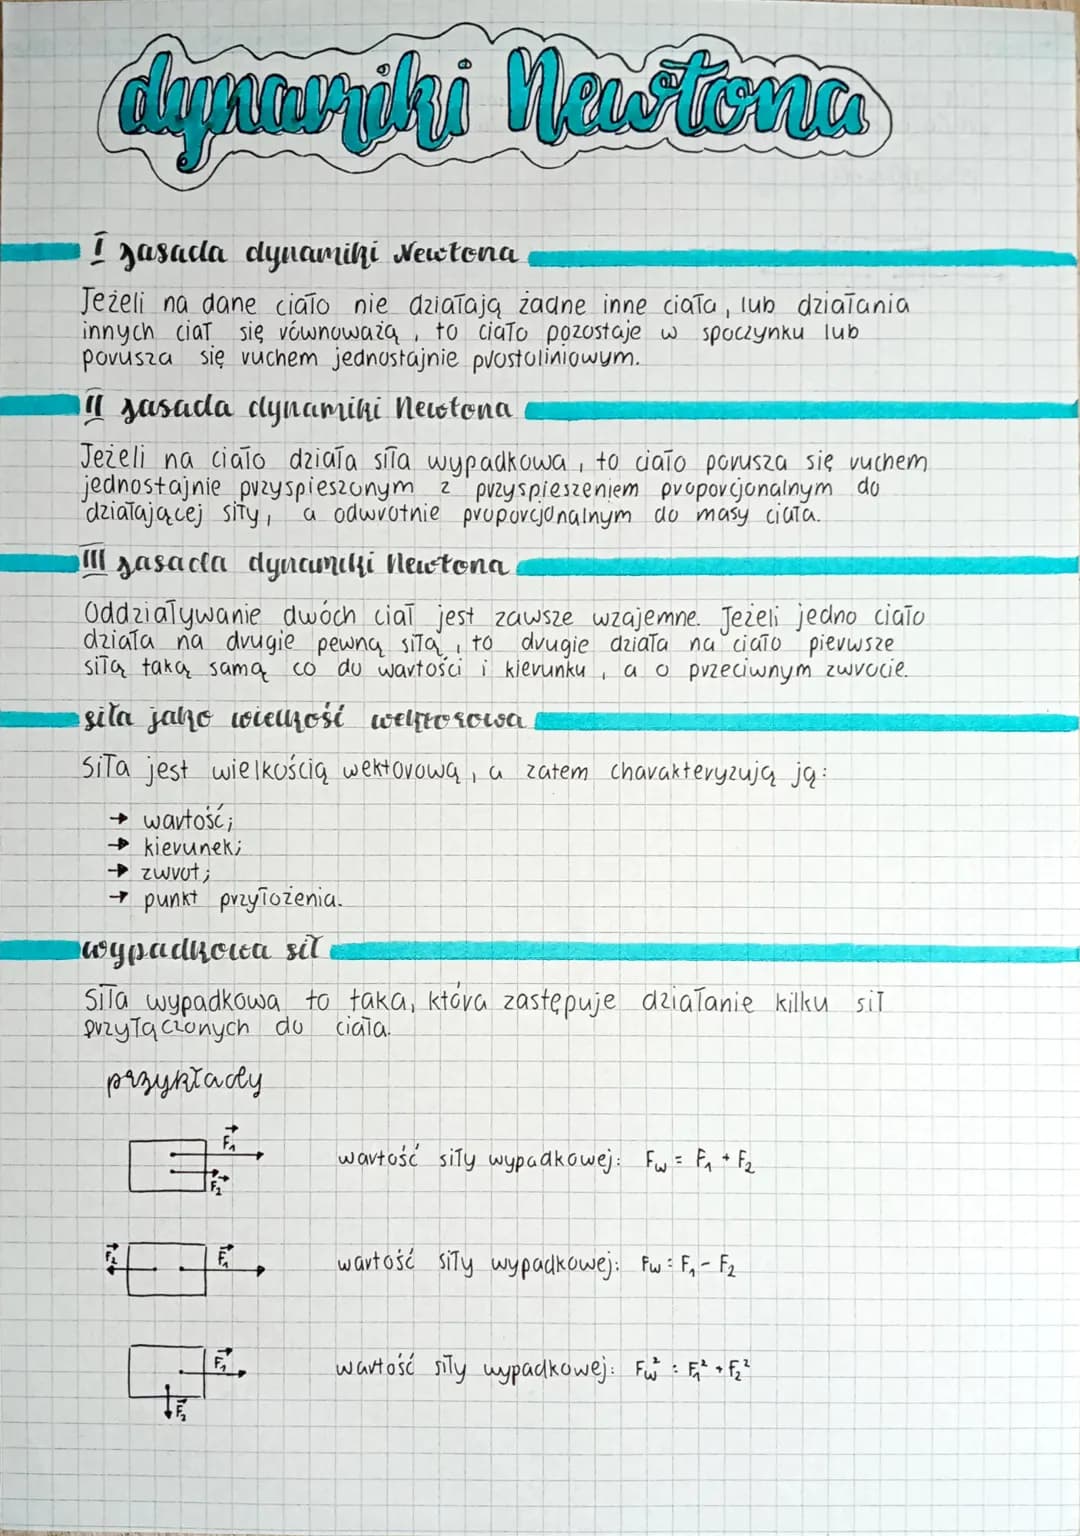 dynamiki Newtona
I zasada dynamiki Newtona
Jeżeli na dane ciało nie działają żadne inne ciała, lub działania
innych ciał się równoważą, to ciało pozostaje w spoczynku lub
porusza się ruchem jednostajnie prostoliniowym.
II zasada dynamiki Newtona
Jeżeli na ciało działa siła wypadkowa, to ciało porusza się ruchem
jednostajnie przyspieszonym z przyspieszeniem proporcjonalnym do
działającej siły, a odwrotnie proporcjonalnym do masy ciała.
III zasada dynamiki Newtona
Oddziaływanie dwóch ciał jest zawsze wzajemne. Jeżeli jedno ciało
działa na drugie pewną siłą, to drugie działa na ciało pierwsze
siłą taką samą co do wartości i kierunku, a o przeciwnym zwrocie.
siła jako wielkość wektorowa
Siła jest wielkością wektorową, a zatem charakteryzują ją:
→ wartość;
→ kierunek;
→ zwrot;
→ punkt przyłożenia.
wypadkowa sił
Siła wypadkowa to taka, która zastępuje działanie kilku sił
przyłączonych do ciała.
przykłady
F₁
F₂
wartość siły wypadkowej: Fw = F₁ + F₂
F₂
F₁
wartość siły wypadkowej: Fw = F₁ - F₂
F₁
F₂
wartość siły wypadkowej: Fw² = F₁² + F₂²